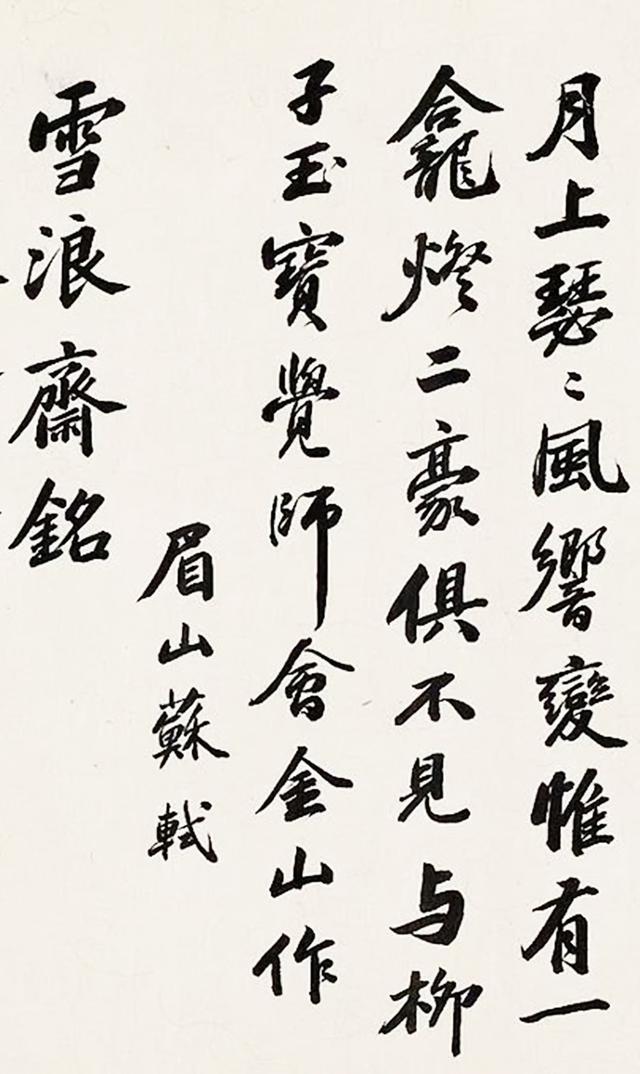 月上瑟〻風響變惟有一
龕燈二豪俱不見与柳
子玉寶覺師會金山作
眉山蘇軾
雪浪齋銘